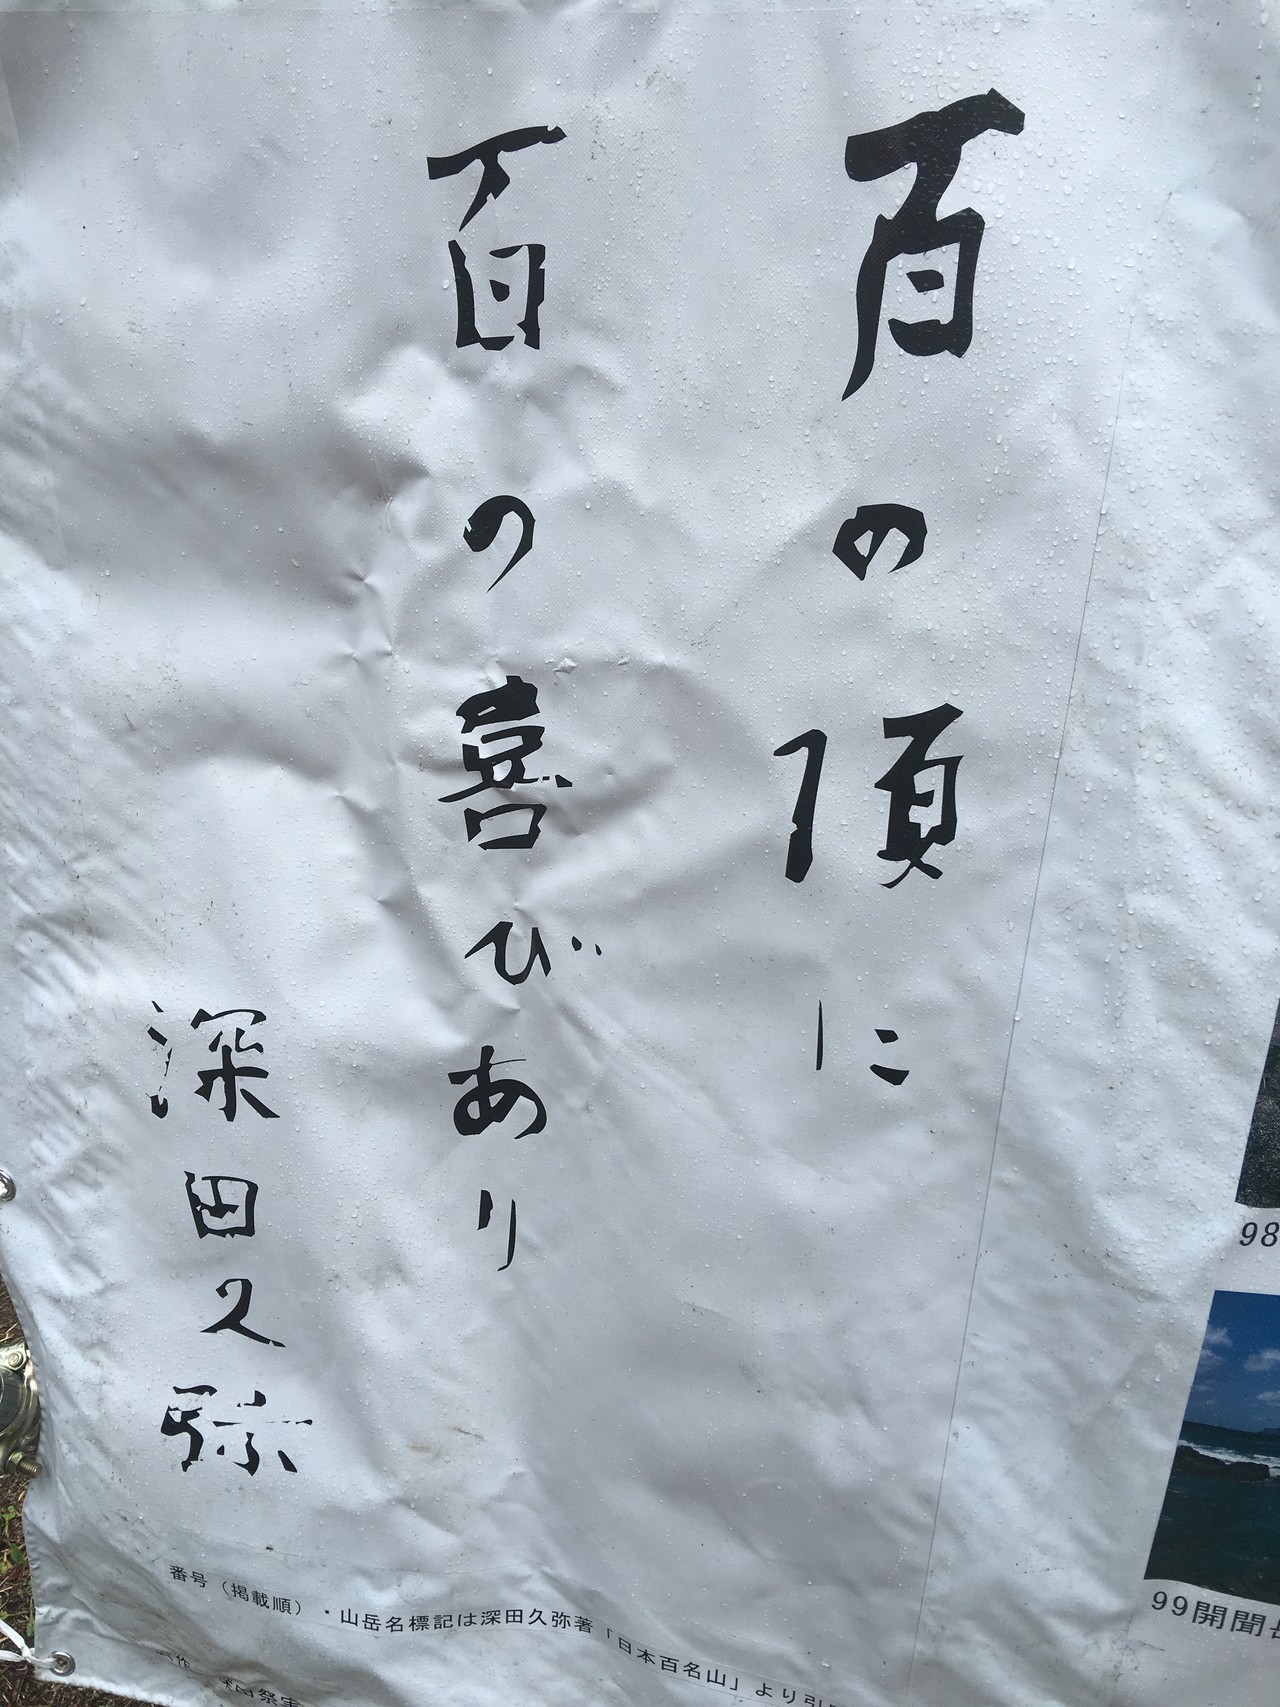 百の頂に
百の喜びあり
深田久弥
98
99開聞
番号（掲載順）・山岳名標記は深田久弥著「日本百名山」より引